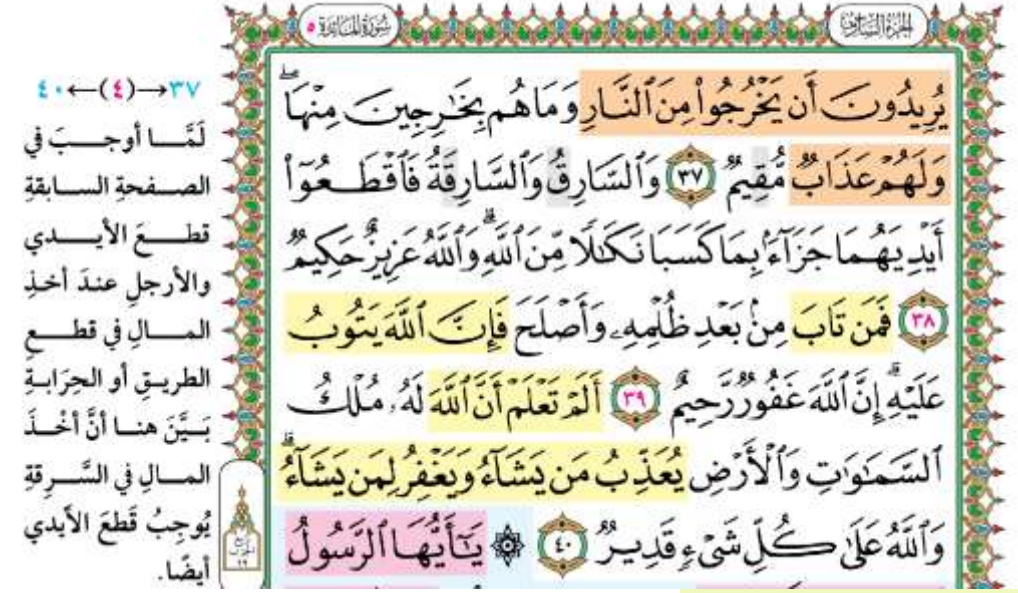 الجزء السادس
سورة المائدة ٥
يُرِيدُونَ أَن يَخْرُجُوا۟ مِنَ ٱلنَّارِ وَمَا هُم بِخَٰرِجِينَ مِنْهَا ۖ
وَلَهُمْ عَذَابٌ مُّقِيمٌ ٣٧ وَٱلسَّارِقُ وَٱلسَّارِقَةُ فَٱقْطَعُوٓا۟
أَيْدِيَهُمَا جَزَآءًۢ بِمَا كَسَبَا نَكَٰلًا مِّنَ ٱللَّهِ ۗ وَٱللَّهُ عَزِيزٌ حَكِيمٌ
٣٨ فَمَن تَابَ مِنۢ بَعْدِ ظُلْمِهِۦ وَأَصْلَحَ فَإِنَّ ٱللَّهَ يَتُوبُ
عَلَيْهِ ۗ إِنَّ ٱللَّهَ غَفُورٌ رَّحِيمٌ ٣٩ أَلَمْ تَعْلَمْ أَنَّ ٱللَّهَ لَهُۥ مُلْكُ
ٱلسَّمَٰوَٰتِ وَٱلْأَرْضِ يُعَذِّبُ مَن يَشَآءُ وَيَغْفِرُ لِمَن يَشَآءُ ۗ
وَٱللَّهُ عَلَىٰ كُلِّ شَىْءٍ قَدِيرٌ ٤٠ ۞ يَٰٓأَيُّهَا ٱلرَّسُولُ
٣٧→(٤)←٤٠
لَمَّا أوجبَ في
الصفحةِ السابقةِ
قطعَ الأيدي
والأرجلِ عندَ أخذِ
المالِ في قطعِ
الطريقِ أو الحِرَابةِ
بَيَّنَ هنا أنَّ أخْذَ
المالِ في السَّرقةِ
يُوجِبُ قَطعَ الأيدي
أيضًا.